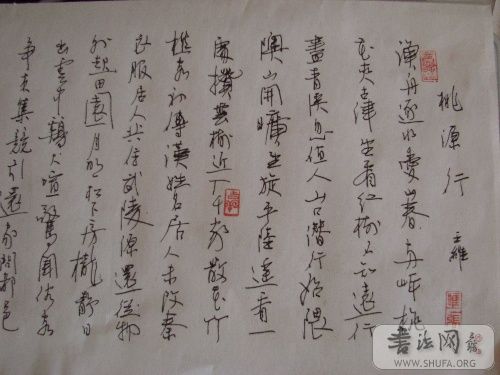 桃源行 王維
漁舟逐水愛山春 两岸桃
花夾古津坐看红樹不知遠行
盡青溪忽值人山口潛行始隈
隩山開曠望旋平陸遥看一
處攢雲樹近入千家散花竹
樵客初傳漢姓名居人未改秦
衣服居人共住武陵源還從物
外起田園月明松下房櫳静日
出雲中鷄犬喧驚聞俗客
争来集競引還家問都邑
書法网
WWW.SHUFA.ORG